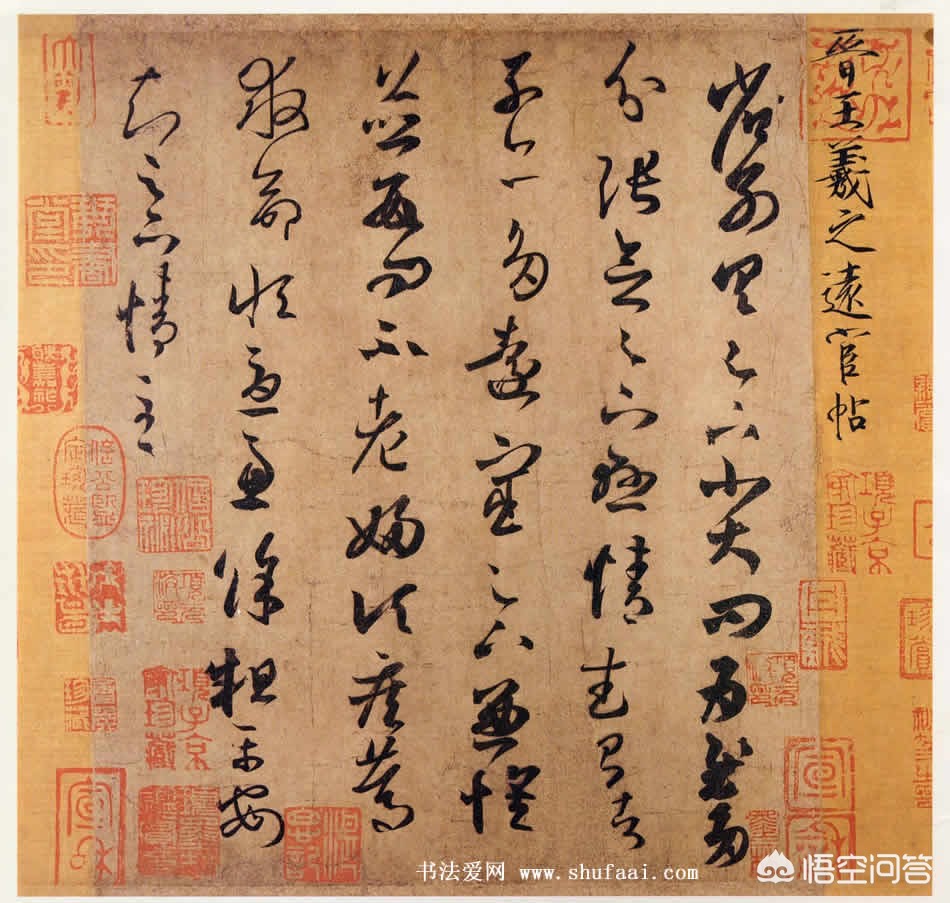 晉王羲之遠宦帖
省別具足下小大問為慰多
分張念足下懸情武昌諸
子亦多遠宦足下兼懷
並數問不老婦頃疾篤
救命恒憂慮餘粗平安
知足下情至
項子京家珍藏
項子京家珍藏
宣和
书法爱网 www.shufaai.com
悟空问答